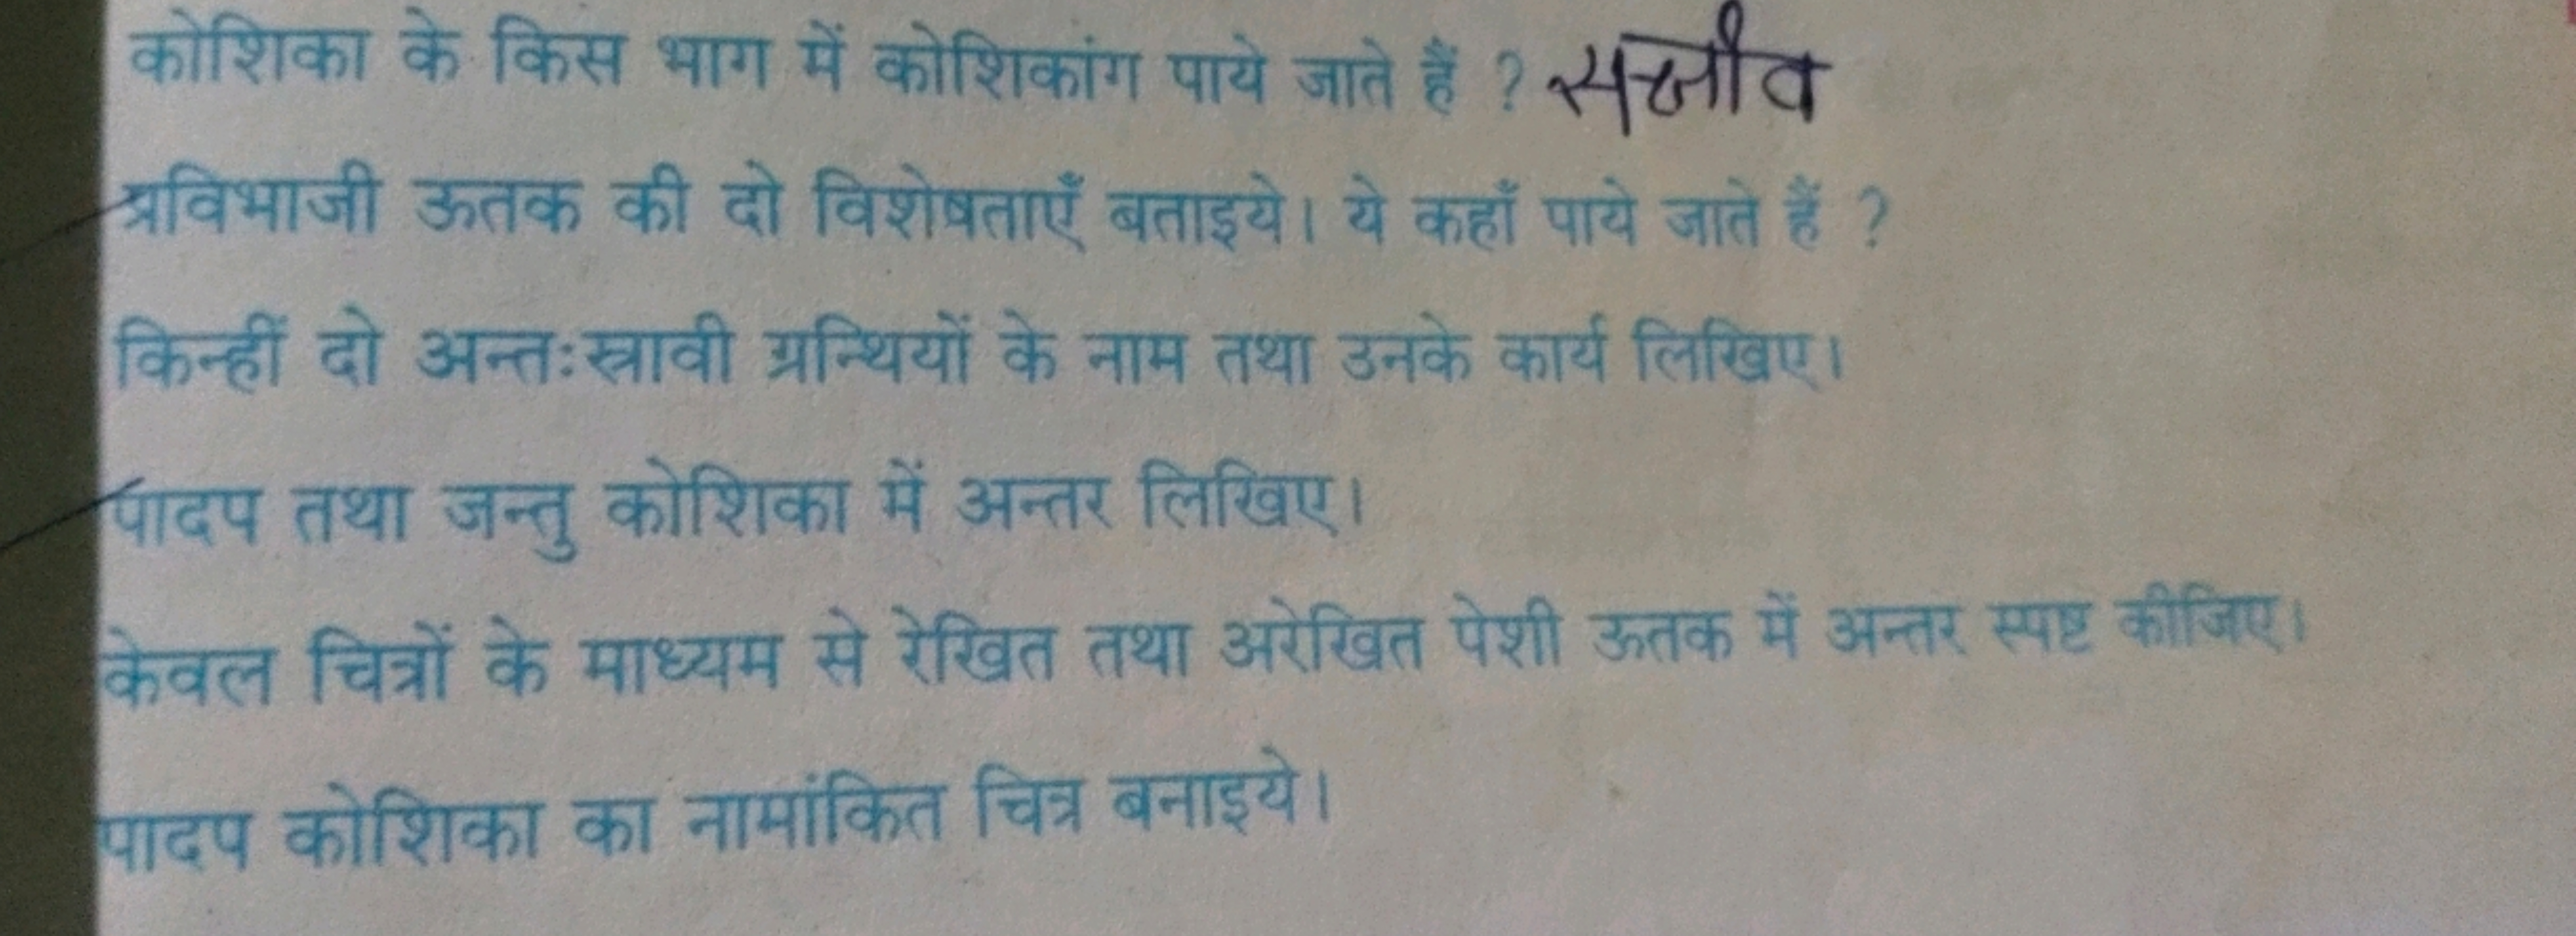 कोशिका के किस भाग में कोशिकांग पाये जाते हैं ? सजीव
प्रविभाजी ऊतक की दो विशेषताएँ बताइये। ये कहाँ पाये जाते हैं ?
किन्हीं दो अन्तःस्रावी ग्रन्थियों के नाम तथा उनके कार्य लिखिए।
पादप तथा जन्तु कोशिका में अन्तर लिखिए।
केवल चित्रों के माध्यम से रेखित तथा अरेखित पेशी ऊतक में अन्तर स्पष्ट कीजिए।
पादप कोशिका का नामांकित चित्र बनाइये।